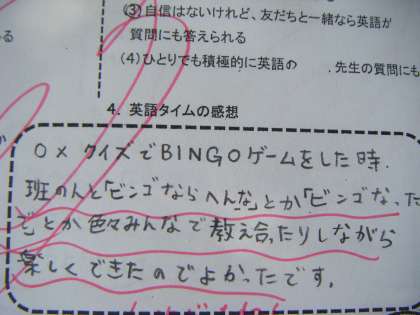 ③ 自信はないけれど、友だちと一緒なら英語が
質問にも答えられる
(4) ひとりでも積極的に英語の 先生の質問にも
4. 英語タイムの感想
○×クイズでBINGOゲームをした時、
班の人と「ビンゴならへんな」とか「ビンゴなった
で」とか色々みんなで教え合ったりしながら
楽しくできたのでよかったです。